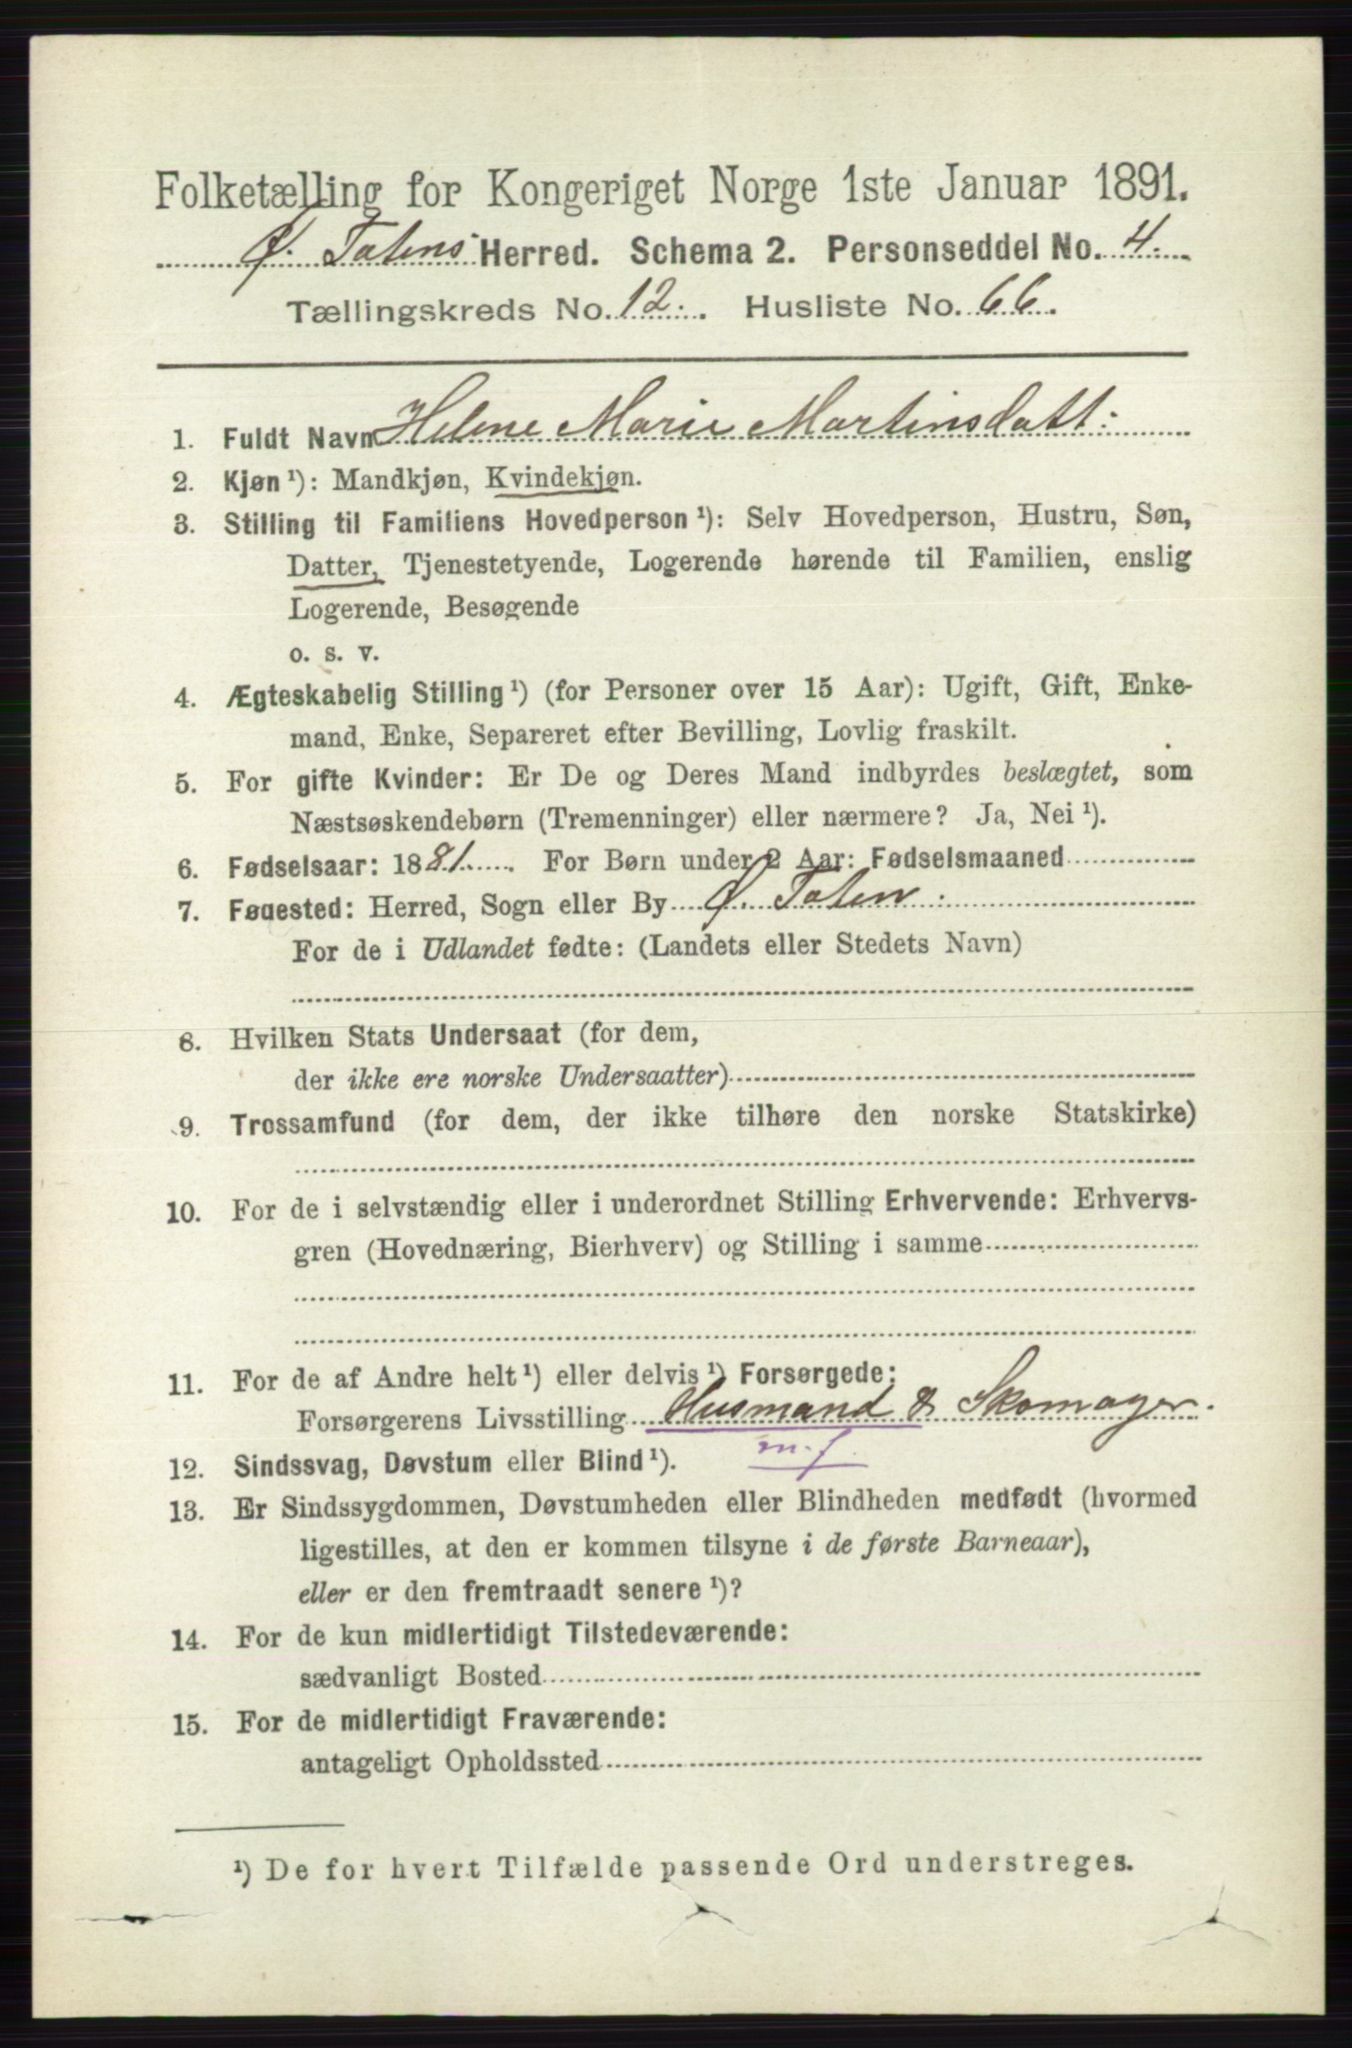 Folketælling for Kongeriget Norge 1ste Januar 1891.
Ø. Totens Herred. Schema 2. Personseddel No. 4.
Tællingskreds No. 12. Husliste No. 66.
1. Fuldt Navn Helene Marie Martinsdatt:
2. Kjøn¹): Mandkjøn, Kvindekjøn.
3. Stilling til Familiens Hovedperson¹): Selv Hovedperson, Hustru, Søn,
Datter, Tjenestetyende, Logerende hørende til Familien, enslig
Logerende, Besøgende
o. s. v.
4. Ægteskabelig Stilling¹) (for Personer over 15 Aar): Ugift, Gift, Enke-
mand, Enke, Separeret efter Bevilling, Lovlig fraskilt.
5. For gifte Kvinder: Er De og Deres Mand indbyrdes beslægtet, som
Næstsøskendebørn (Tremenninger) eller nærmere? Ja, Nei¹).
6. Fødselsaar: 1881. For Børn under 2 Aar: Fødselsmaaned
7. Føaested: Herred, Sogn eller By Ø. Toten.
For de i Udlandet fødte: (Landets eller Stedets Navn)
8. Hvilken Stats Undersaat (for dem,
der ikke ere norske Undersaatter)
9. Trossamfund (for dem, der ikke tilhøre den norske Statskirke)
10. For de i selvstændig eller i underordnet Stilling Erhvervende: Erhvervs-
gren (Hovednæring, Bierhverv) og Stilling i samme
11. For de af Andre helt¹) eller delvis¹) Forsørgede:
Forsørgerens Livsstilling Husmand & Skomager.
m. f.
12. Sindssvag, Døvstum eller Blind¹).
13. Er Sindssygdommen, Døvstumheden eller Blindheden medfødt (hvormed
ligestilles, at den er kommen tilsyne i de første Barneaar),
eller er den fremtraadt senere¹)?
14. For de kun midlertidigt Tilstedeværende:
sædvanligt Bosted
15. For de midlertidigt Fraværende:
antageligt Opholdssted
¹) De for hvert Tilfælde passende Ord understreges.